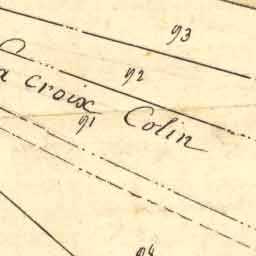 93
92
a croix Colin
91